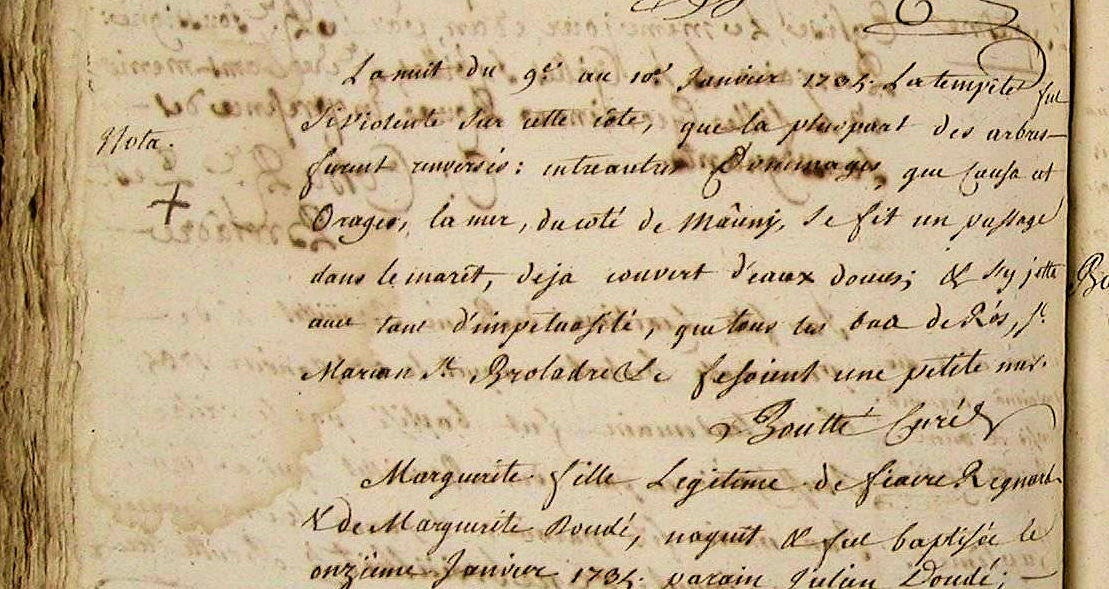 La nuit du 9e. au 10e. Janvier 1735. La tempête fut
Nota.
Si violente sur cette côte, que la pluspart des arbres
furent renversés: entre autres Dommages, que causa cet
Orages, la mer, du coté de Mâuny, se fit un passage
dans le marêt, deja couvert d'eaux douces; & s'y jetta
avec tant d'impétuosité, que tous les bas de Rós, St.
Marcan St. Broladre &c fesoient une petite mer.
Boutté Curé
Marguerite fille Legitime de Regnard
& de Marguerite Doudé, naquit & fut baptisée le
onzième Janvier 1735. parain Julien Doudé;